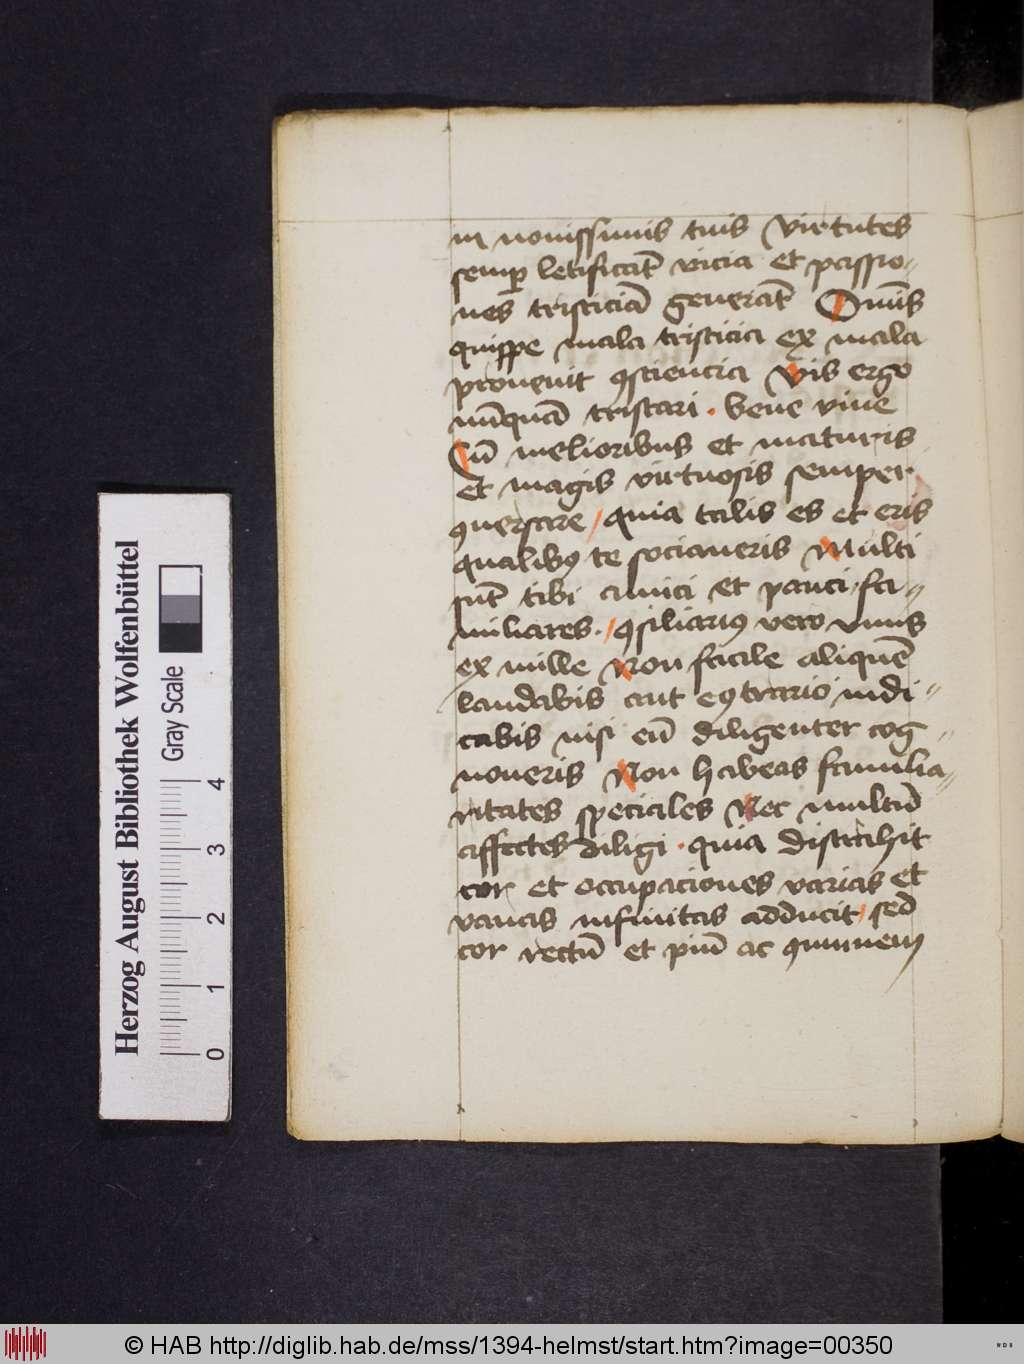 in nouissimis tuis Virtutes
semꝑ letificāt vicia et passio-
nes tristiciā generāt Omīs
quippe mala tristicia ex mala
prouenit ꝯsciencia Vis ergo
nūquā tristari · bene viue
Cū melioribus et maturis
et magis virtuosis semper
ꝯuersare / quia talis es et eris
qualibꝰ te sociaueris Multi
sūt tibi amici et pauci fa-
miliares · / ꝯsiliariꝰ vero vnus
ex mille Non facile aliquē
laudabis aut eꝯtrario iudi-
cabis nisi eū diligenter cog-
noueris Non habeas familia-
ritates speciales Nec multū
affectes diligi · quia distrahit
cor et occupaciones varias et
vanas infinitas adducit / sed
cor rectū et piū ac
Herzog August Bibliothek Wolfenbüttel
Gray Scale
0 1 2 3 4
© HAB http://diglib.hab.de/mss/1394-helmst/start.htm?image=00350